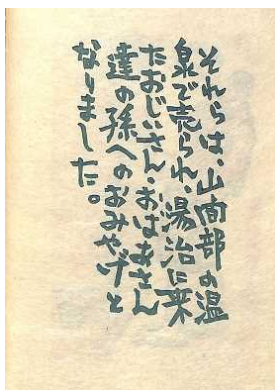 それらは、山間部の温
泉で売られ、湯治に来
たおじいさん・おばあさん
達の孫へのおみやげと
なりました。